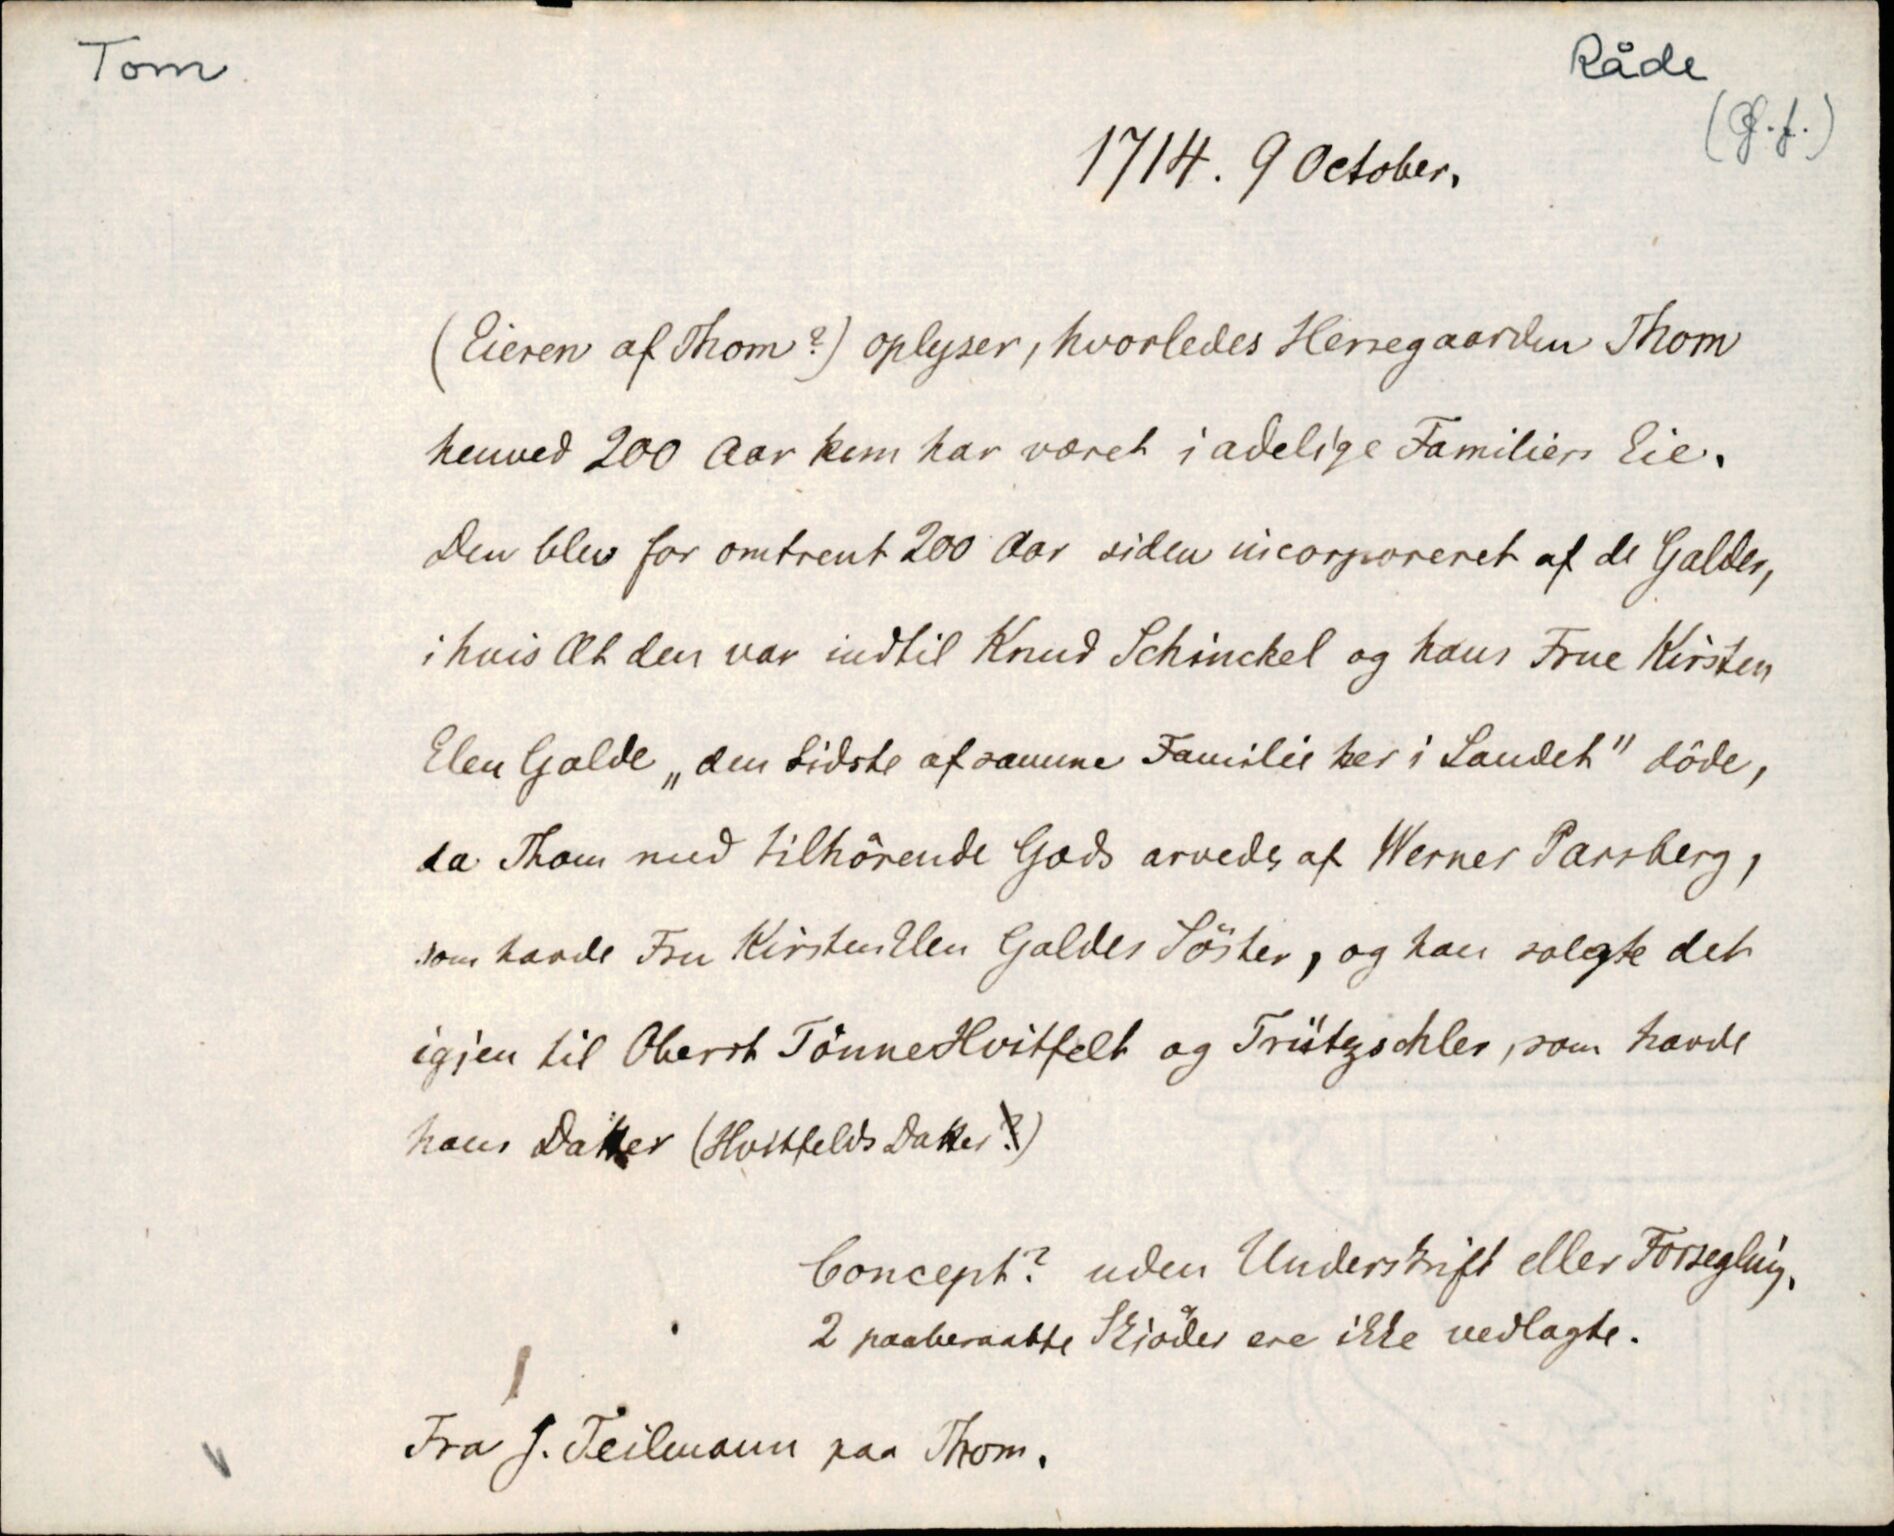 Tom
Råde
(Øf.f.)
1714. 9 October.
(Eieren af Thom?) oplyser, hvorledes Herregaarden Thom
henved 200 Aar hem har været i adelige Familiers Eie.
Den blev for omtrent 200 Aar siden incorporeret af de Galder,
i hvis Æt den var indtil Knud Schinckel og hans Frue Kirsten
Elen Galde „den sidste af samme Familie her i Landet" döde,
da Thom med tilhörende Gods arvedes af Werner Parsberg,
som havde Fru Kirsten Elen Galdes Söster, og han solgte det
igjen til Oberst Tönne Hvitfelt og Trützschler, som havde
hans Datter (Hvitfelds Datter?)
Concept? uden Underskrift eller Forsegling.
2 paaberaabte Skjöder ere ikke vedlagte.
Fra J. Teilmann paa Thom.